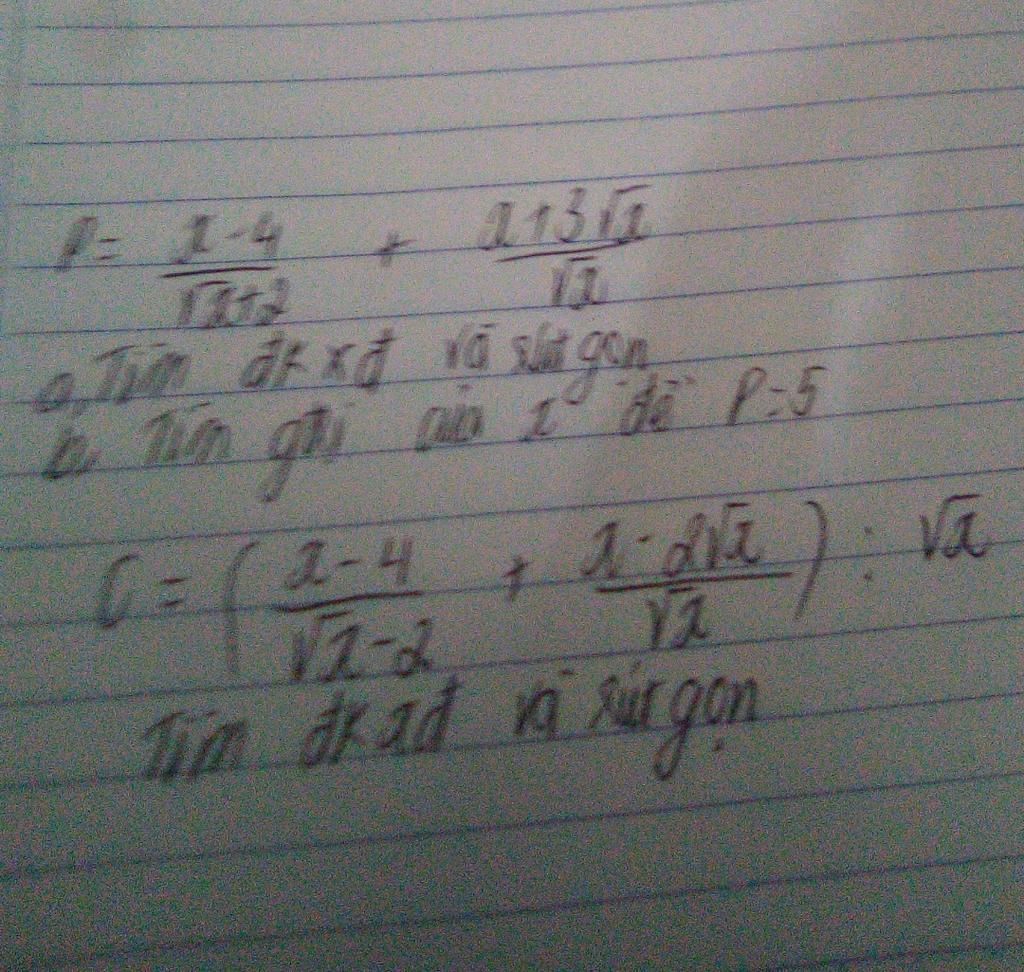 P = \frac{x-4}{\sqrt{x}+2} + \frac{x+3\sqrt{x}}{\sqrt{x}}
a, Tìm đkxđ và rút gọn
b, Tìm gtrị của x để P = 5
C = ( \frac{x-4}{\sqrt{x}-2} + \frac{x-2\sqrt{x}}{\sqrt{x}} ) : \sqrt{x}
Tìm đkxđ và rút gọn